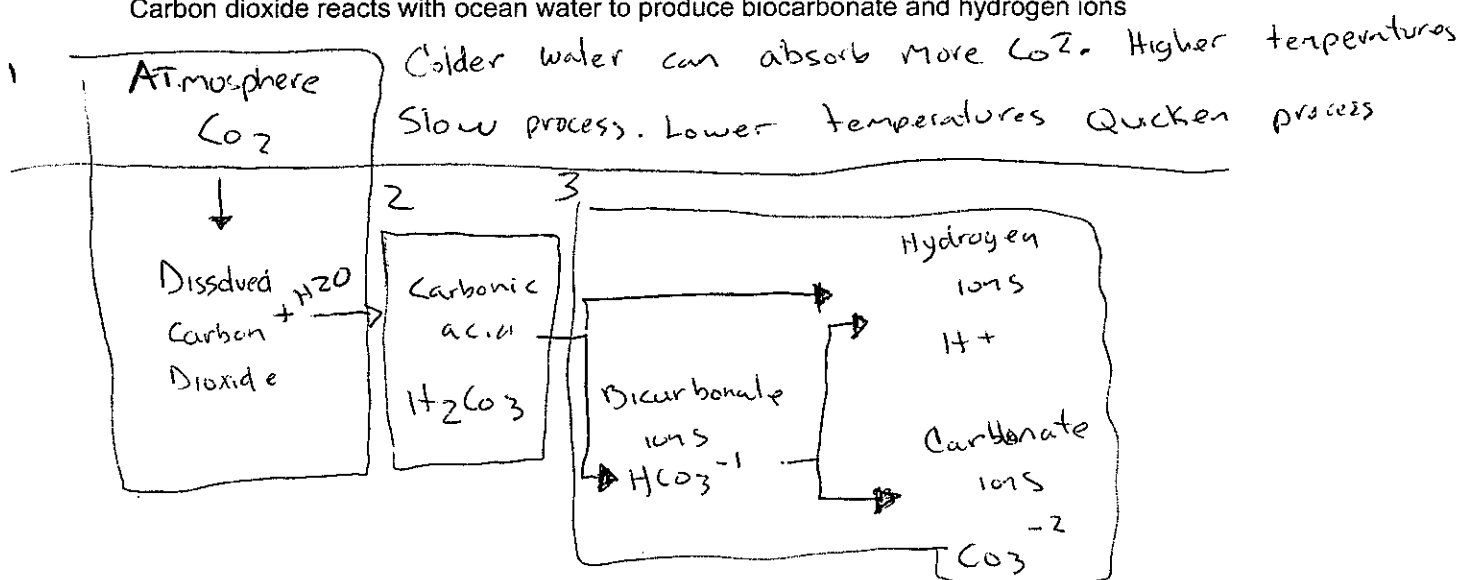 Carbon dioxide reacts with ocean water to produce biocarbonate and hydrogen ions
1
ATmosphere
Co2
Colder water can absorb more Co2. Higher temperatures
Slow process. Lower temperatures Quicken process
Dissolved
Carbon
Dioxide
+ H2O
2
Carbonic
acid
H2Co3
3
Hydrogen
ions
H+
Bicarbonate
ions
HCO3-1
Carbonate
ions
CO3-2